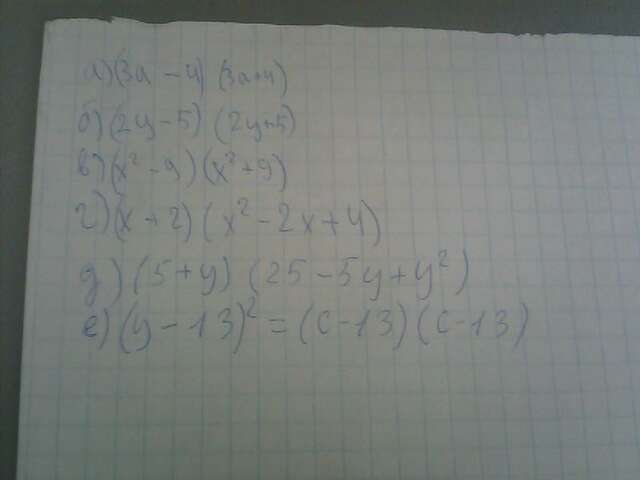 а) (3a - 4) (3a+4)
б) (2y - 5) (2y+5)
в) (x² - 9) (x² + 9)
г) (x + 2) (x² - 2x + 4)
д) (5 + y) (25 - 5y + y²)
е) (y - 13)² = (c - 13) (c - 13)